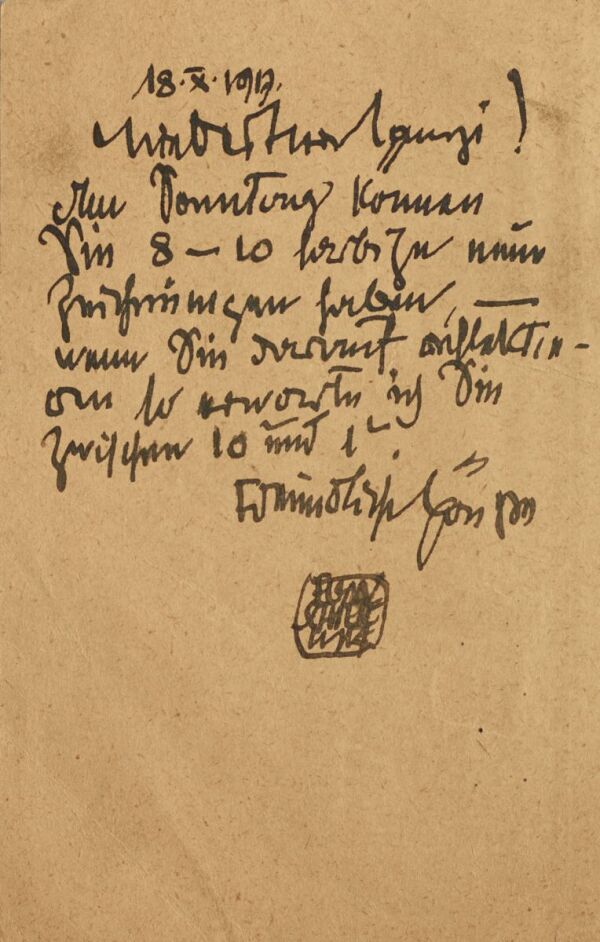 18.X.1917.
Liebster Herr Lanyi!
Am Sonntag können
Sie 8 – 10 farbige neue
Zeichnungen haben, —
wenn Sie darauf reflektie-
ren so erwarte ich Sie
zwischen 10 und 1 h.
Freundliche Grüsse
EGON
SCHIELE